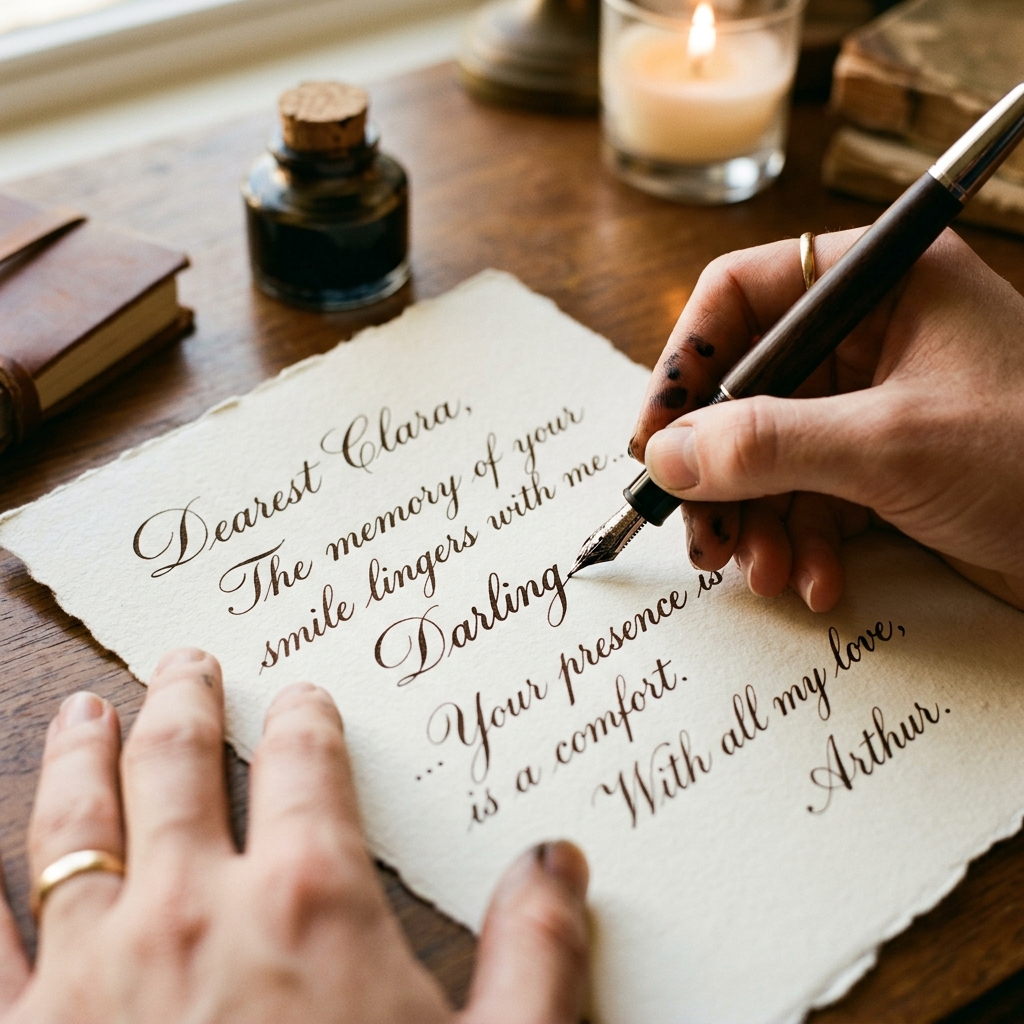 Dearest Clara,
The memory of your
smile lingers with me...
Darling
...Your presence is
is a comfort.
With all my love,
Arthur.